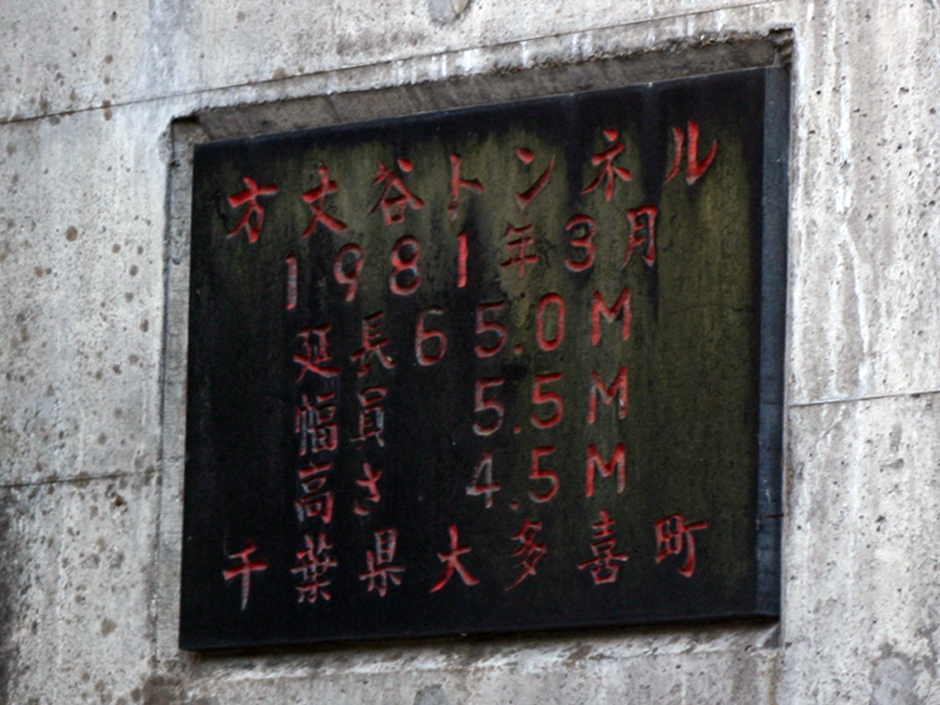 方丈谷トンネル
1981年3月
延長65.0M
幅員 5.5M
高さ 4.5M
千葉県大多喜町